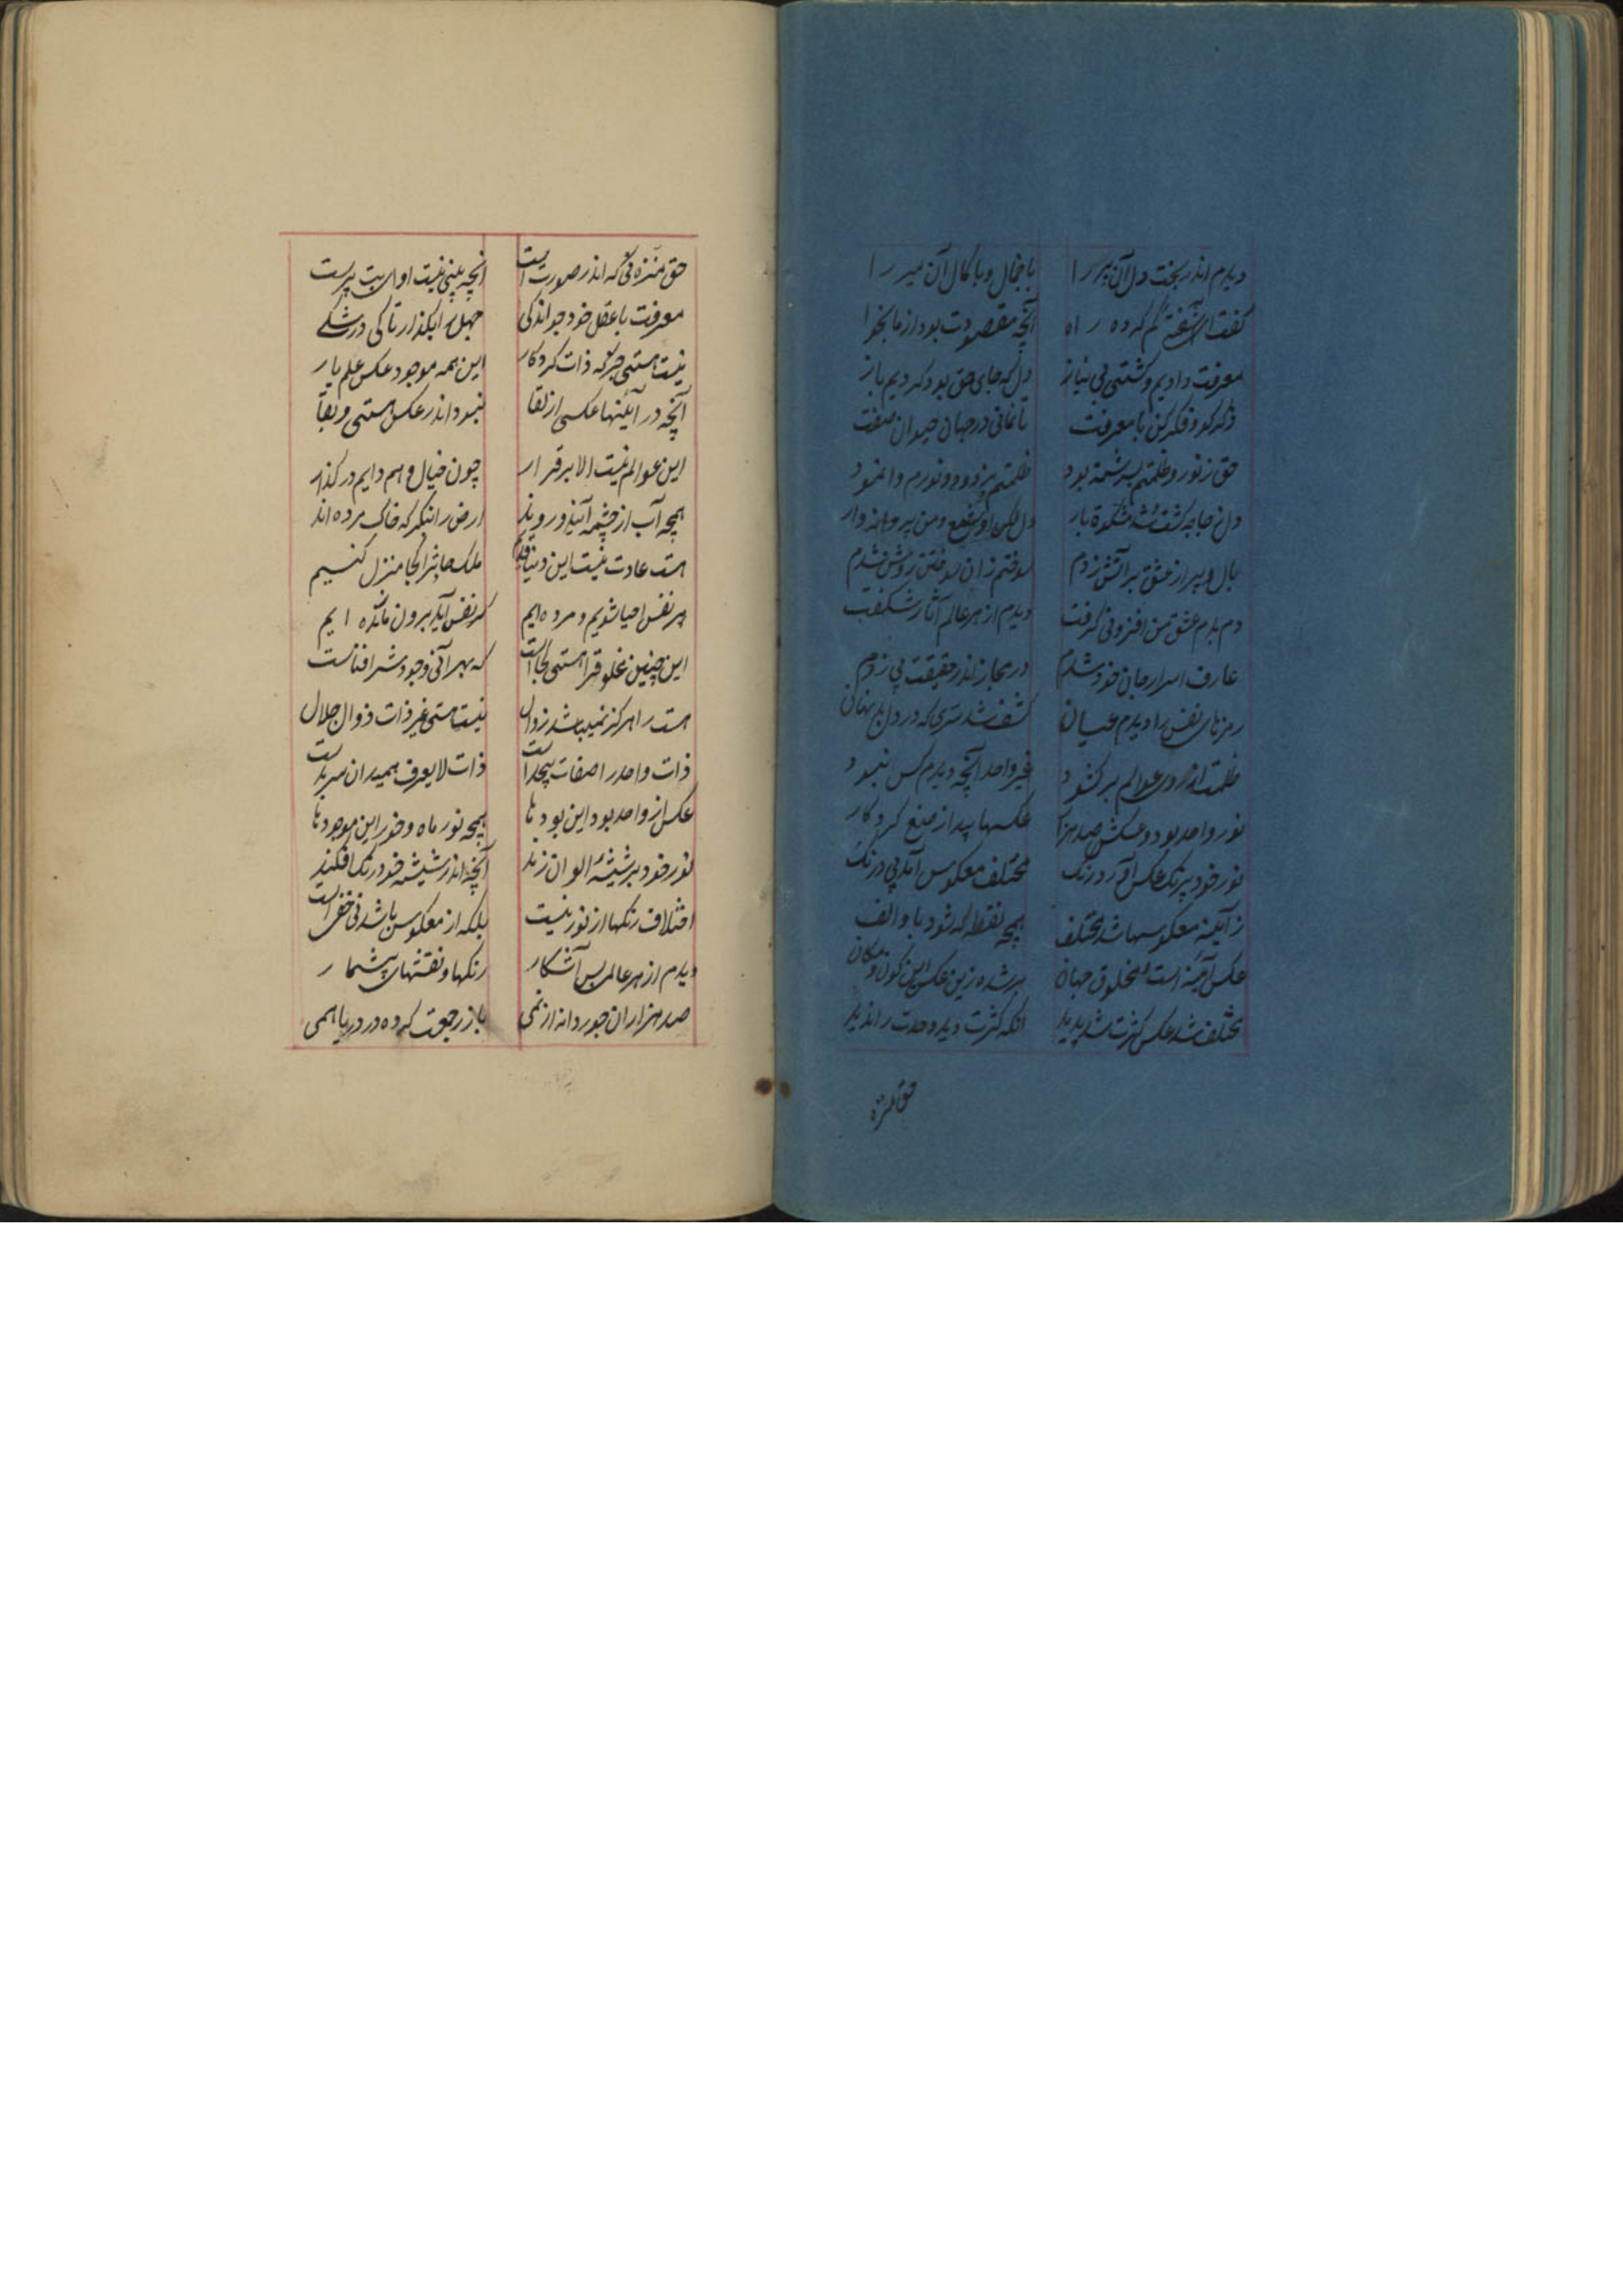 دیدم اندر تخت دل آن پیر را با جمال و با کمال آن میر را
گفت ای کم کرده راه آنچه مقصودت بود از ما بخواه
معرفت دادیم و گشتی بی نیاز دل که جای حق بود کردیم باز
ذکر کو و فکر کن با معرفت تا نمانی در جهان حیوان صفت
حق ز نور و ظلمتم بسرشته بود ظلمتم بزدود و نورم وا نمود
دل شد مشکوة یار دل لکن او شمع و من پروانه وار
بال و پر از عشق بر آتش زدم سوختم زان سوختن روشن شدم
دم بدم عشق من افزونی گرفت دیدم از هر عالم آثار شگفت
عارف اسرار جان خود شدم در مجاز اندر حقیقت پی زدم
رمزهای نفس را دیدم عیان کشف شد سری که در دل بد نهان
ظلمت از روی عوالم برگشود غیر واحد آنچه دیدم کس نبود
نور واحد بود و عکسش صد هزار عکسها پید از صنع کردگار
نور خود بیرنگ عکس آورد رنگ مختلف معکوس آمد بی درنگ
ز آینه معکوسها شد مختلف همچه نقطه که شود با و الف
عکس آینه است مخلوق جهان بر شده زین عکس این کون و مکان
مختلف شد عکس کثرت شد پدید آنکه کثرت دید وحدت را ندید
حق منزه
حق منزه نی که اندر صورت است آنچه بینی نیست او ای بت پرست
معرفت با عقل خود جو اندکی جهل را بگذار تا کی در شکی
نیست هستی جز که ذات کردکار این همه موجود عکس علم یار
آنچه در آئینها عکسی از لقا نبود اندر عکس هستی و بقا
این عوالم نیست الا برقرار چون خیال و هم دایم در گذار
همچه آب از چشمه آیند و روند ارض را بنگر که خاک مرده اند
هست عادت نیست این دنیا قدیم ملک حادث را کجا منزل کنیم
هر نفس احیا شویم و مرده ایم گر نفس آید برون مانده ایم
این چنین مخلوق را هستی کجاست که بهر آنی وجودش را فناست
هست را هرگز نمیباشد زوال نیست هستی غیر ذات ذوالجلال
ذات واحد را صفات بیحد است ذات لا یعرف همیدان سرمد است
عکس از واحد بود این بودها همچه نور ماه و خور این موجودها
نور خود بر شیشۀ الوان زند آنچه اندر شیشه خود رنگ افکند
اختلاف رنگها از نور نیست بلکه از معکوس باشد نی خفی است
دیدم از هر عالمی بس آشکار رنگها و نقشهای بیشمار
صد هزاران جور دانه از نمی باز رجعت کرده در دریا همی